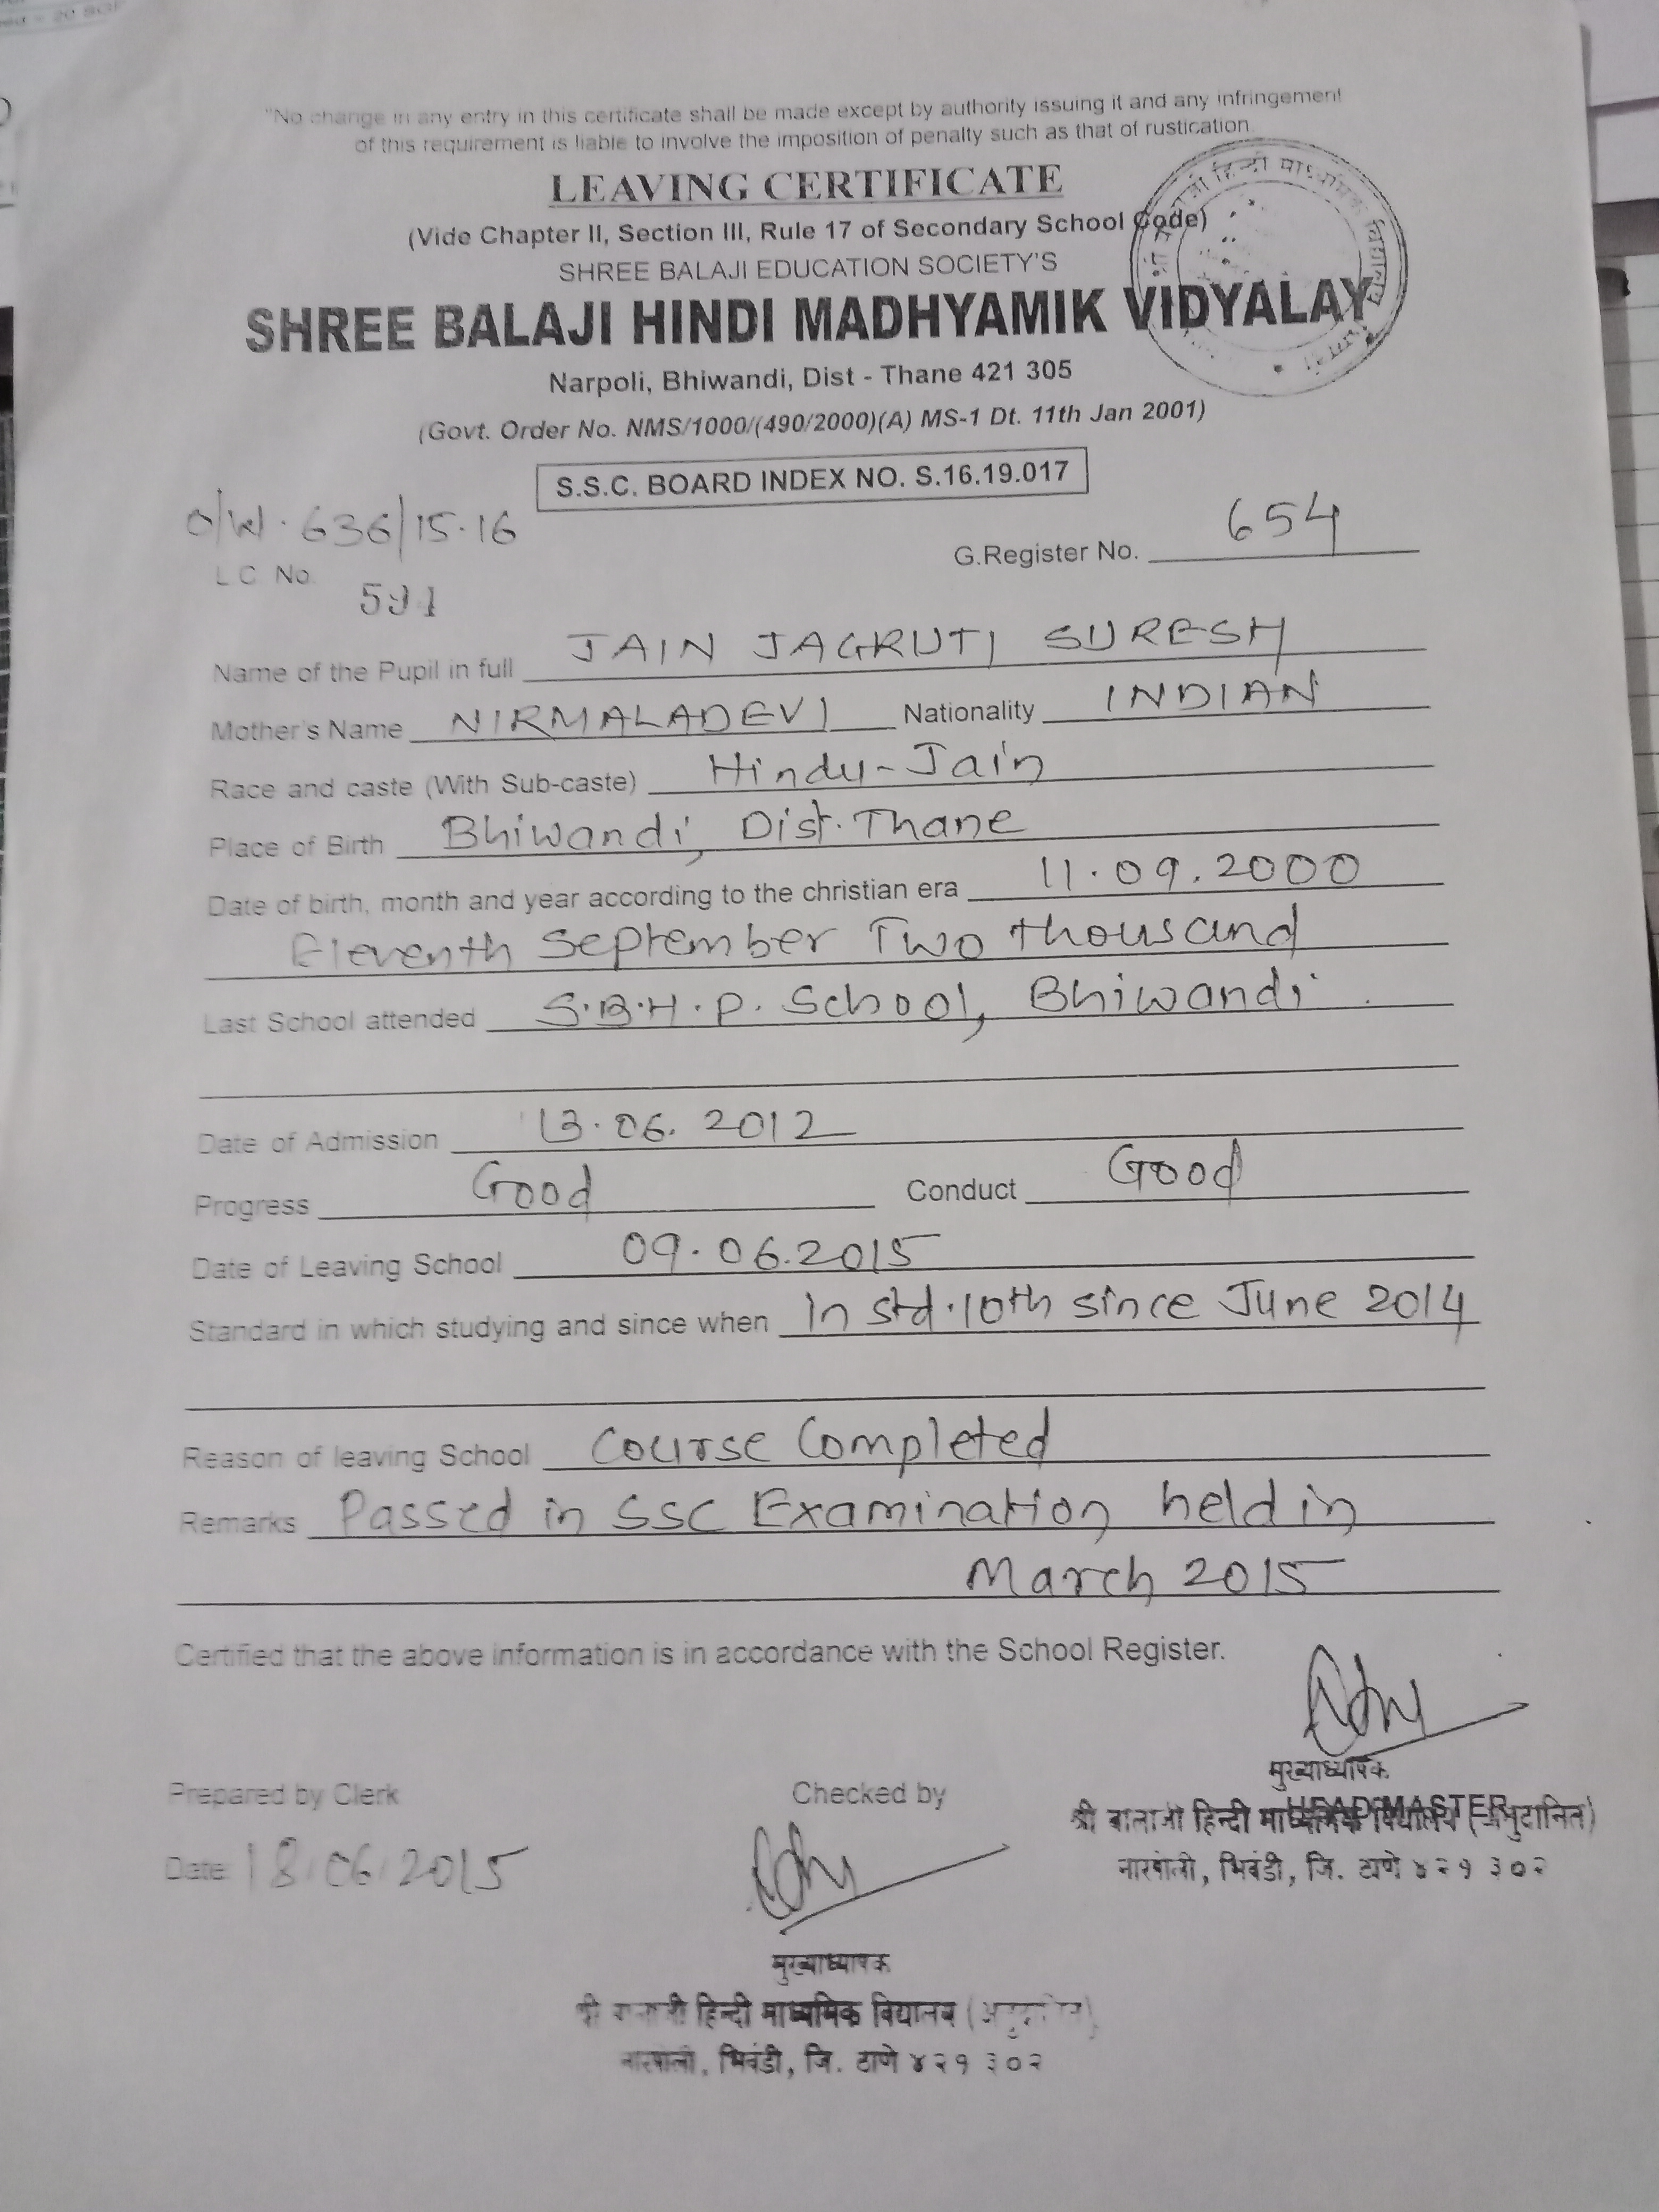 "No change in any entry in this certificate shall be made except by authority issuing it and any infringement
of this requirement is liable to involve the imposition of penalty such as that of rustication.
LEAVING CERTIFICATE
(Vide Chapter II, Section III, Rule 17 of Secondary School Code)
SHREE BALAJI EDUCATION SOCIETY'S
SHREE BALAJI HINDI MADHYAMIK VIDYALAY
Narpoli, Bhiwandi, Dist - Thane 421 305
(Govt. Order No. NMS/1000/(490/2000)(A) MS-1 Dt. 11th Jan 2001)
S.S.C. BOARD INDEX NO. S.16.19.017
O/W. 636/15-16
G.Register No. 654
L C No. 591
Name of the Pupil in full JAIN JAGRUTI SURESH
Mother's Name NIRMALADEVI Nationality INDIAN
Race and caste (With Sub-caste) Hindu-Jain
Place of Birth Bhiwandi, Dist. Thane
Date of birth, month and year according to the christian era 11.09.2000
Eleventh September Two thousand
Last School attended S.B.H.P. School, Bhiwandi.
Date of Admission 13.06.2012
Progress Good Conduct Good
Date of Leaving School 09.06.2015
Standard in which studying and since when In std.10th since June 2014
Reason of leaving School Course Completed
Remarks Passed in SSC Examination held in
March 2015
Certified that the above information is in accordance with the School Register.
मुख्याध्यापक
Prepared by Clerk Checked by HEAD MASTER
श्री बालाजी हिन्दी माध्यमिक विद्यालय (अनुदानित)
Date 18/06/2015 नारपोली, भिवंडी, जि. ठाणे ४२१ ३०२
मुख्याध्यापक
श्री बालाजी हिन्दी माध्यमिक विद्यालय (अनुदानित)
नारपोली, भिवंडी, जि. ठाणे ४२१ ३०२